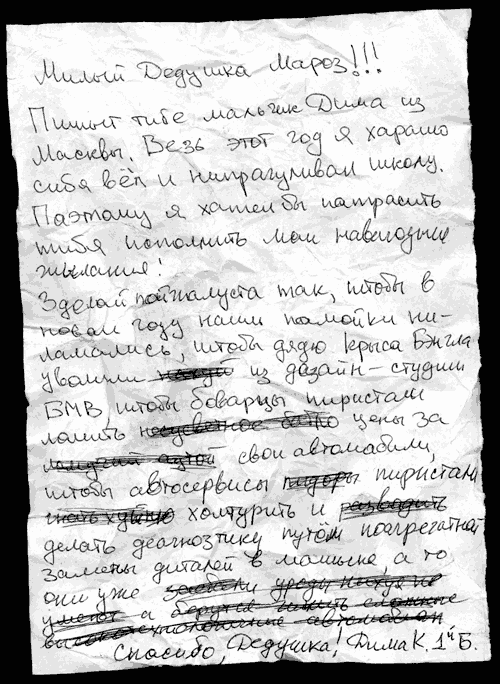 Милый Дедушка Мароз!!!
Пишыт тибе мальчик Дима из
Масквы. Везь этот год я харашо
сибя вёл и нипрагуливал школу.
Паэтаму я хател бы папрасить
тибя исполнить маи навагодние
жылания!
Зделай пайжалуста так, штобы в
новам году наши памойки ни-
ламались, штобы дядю Крыса Бэнгла
уволили из дазайн-студии
БМВ, штобы баварцы пиристали
ломить цены за
свои автомабили,
штобы автосервисы пиристали
халтурить и
делать деагнозтику путём поагрегатной
замены диталей в машыне, а то
они уже
а
Спасибо, Дедушка! Дима К. 1й Б.